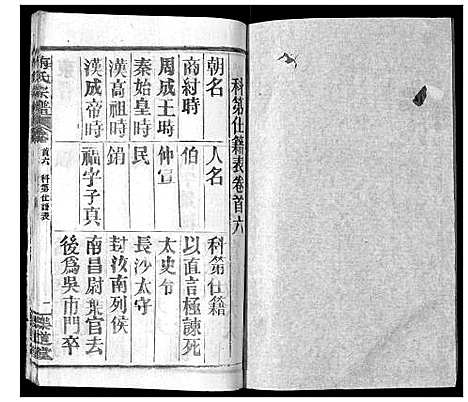 科第仕籍表卷首六
朝名 人名 科第仕籍
商紂時 伯 以直言極諫死
周成王時 仲宣 太史令
秦始皇時 民 長沙太守
漢高祖時 鋗 封汝南列侯
漢成帝時 福字子真 南昌尉棄官去
後為吳市門卒
梅氏宗譜 卷首六 科第仕譜表 一 樂道堂